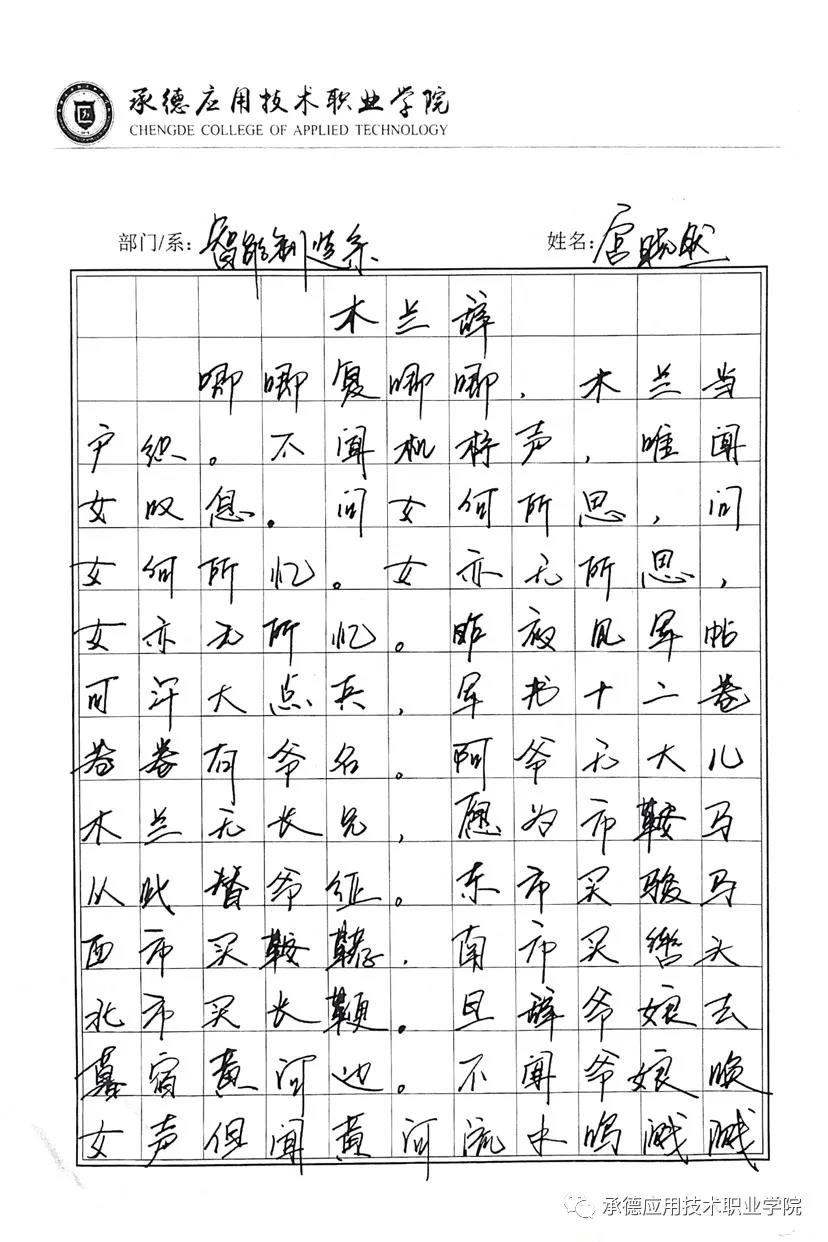 承德应用技术职业学院
CHENGDE COLLEGE OF APPLIED TECHNOLOGY
部门/系：智能制造系 姓名：宫晓然
木兰辞
唧唧复唧唧，木兰当
户织。不闻机杼声，唯闻
女叹息。问女何所思，问
女何所忆。女亦无所思，
女亦无所忆。昨夜见军帖
可汗大点兵，军书十二卷
卷卷有爷名。阿爷无大儿
木兰无长兄，愿为市鞍马
从此替爷征。东市买骏马
西市买鞍鞯，南市买辔头
北市买长鞭。旦辞爷娘去
暮宿黄河边。不闻爷娘唤
女声但闻黄河流水鸣溅溅
承德应用技术职业学院